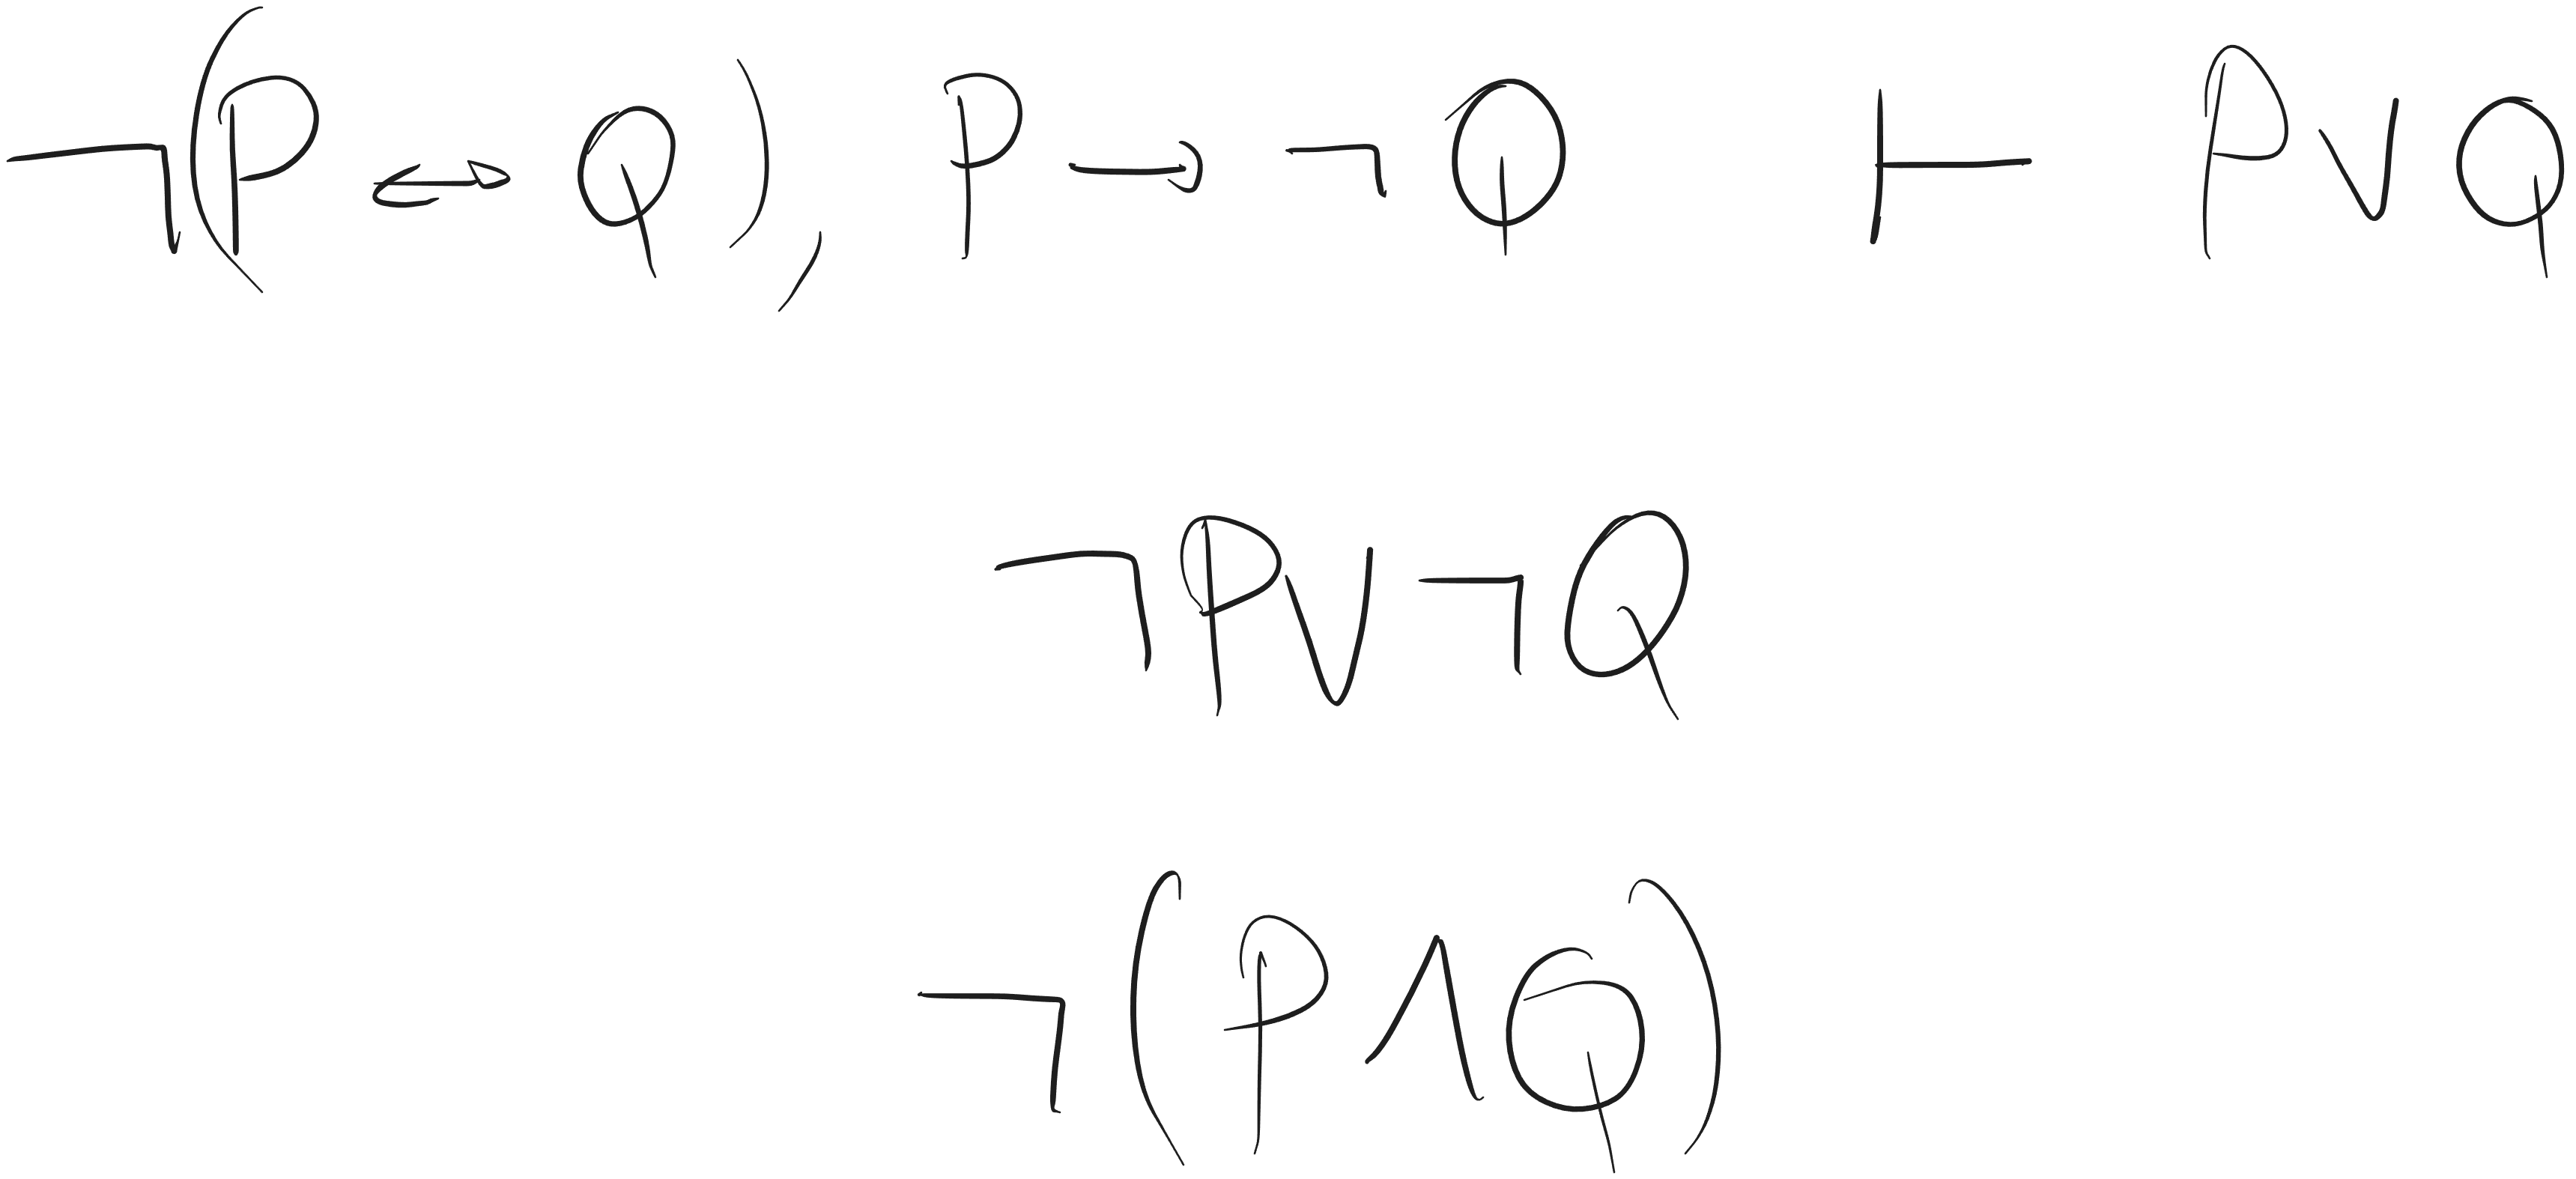 ¬(P ↔ Q), P → ¬Q ⊢ P ∨ Q
¬P ∨ ¬Q
¬(P ∧ Q)